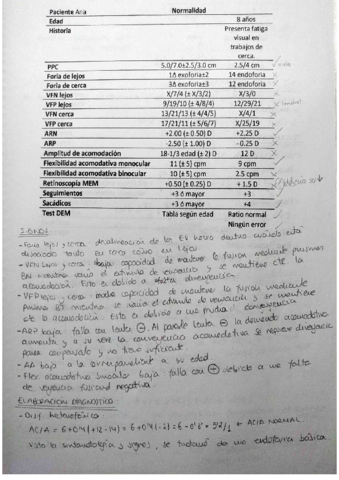 Paciente Ana Normalidad
Edad 8 años
Historia Presenta fatiga
visual en
trabajos de
cerca.
PPC 5.0/7.0±2.5/3.0 cm 2.5/4 cm
Foria de lejos 1Δ exoforia±2 14 endoforia
Foria de cerca 3Δ exoforia±3 12 endoforia
VFN lejos X/7/4 (± X/3/2) X/3/0
VFP lejos 9/19/10 (± 4/8/4) 12/29/21
VFN cerca 13/21/13 (± 4/4/5) X/4/1
VFP cerca 17/21/11 (± 5/6/7) X/25/19
ARN +2.00 (± 0.50) D +2.25 D
ARP -2.50 (± 1.00) D -0.25 D
Amplitud de acomodación 18-1/3 edad (± 2) D 12 D
Flexibilidad acomodativa monocular 11 (± 5) cpm 9 cpm
Flexibilidad acomodativa binocular 10 (± 5) cpm 2.5 cpm
Retinoscopia MEM +0.50 (± 0.25) D + 1.5 D
Seguimientos +3 ó mayor +3
Sacádicos +3 ó mayor +4
Test DEM Tabla según edad Ratio normal
Ningún error
SIGNOS:
- Foria lejos y cerca: desalineación de los EV hacia dentro cuando está
disociado tanto en cerca como en lejos
- VFN lejos y cerca: baja capacidad de mantener la fusión mediante prismas
BN mientras varía el estímulo de vergencia y se mantiene cte la
acomodación. Esto es debido a divergencia
- VFP lejos y cerca: capacidad de mantener la fusión mediante
prismas BT mientras se varía el estímulo de vergencia y se mantiene
cte la acomodación. Esto es debido a convergencia
- ARP baja: falla con lente ⊖. Al ponerle lente ⊖ la demanda acomodativa
aumenta y a su vez la convergencia acomodativa se requiere divergencia
para compensarlo y no tiene suficiente
- AA baja a la correspondiente a su edad
- Flex. acomodativa binocular baja falla con ⊖ debido a una falta
de vergencia fusional negativa.
ELABORACIÓN DIAGNÓSTICO:
- Disf. heterofórica:
AC/A = 6+0'4(+12-14) = 6+0'4(-2) = 6-0'8 = 5'2/1 ← AC/A NORMAL
Vista la sintomatología y signos, se tratará de una endoforia básica.